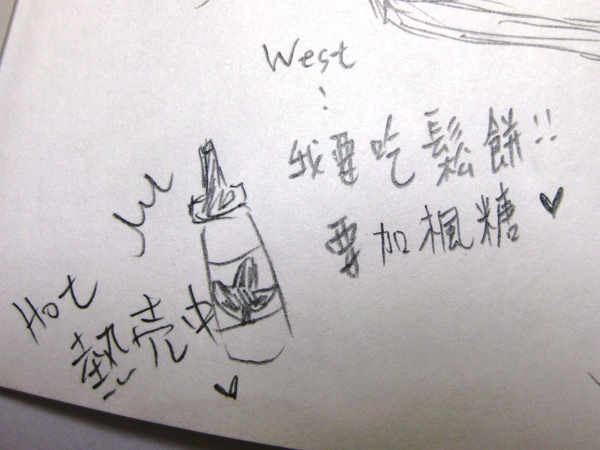 West
:
我要吃鬆餅!!
要加楓糖♥
Hot
熱売中